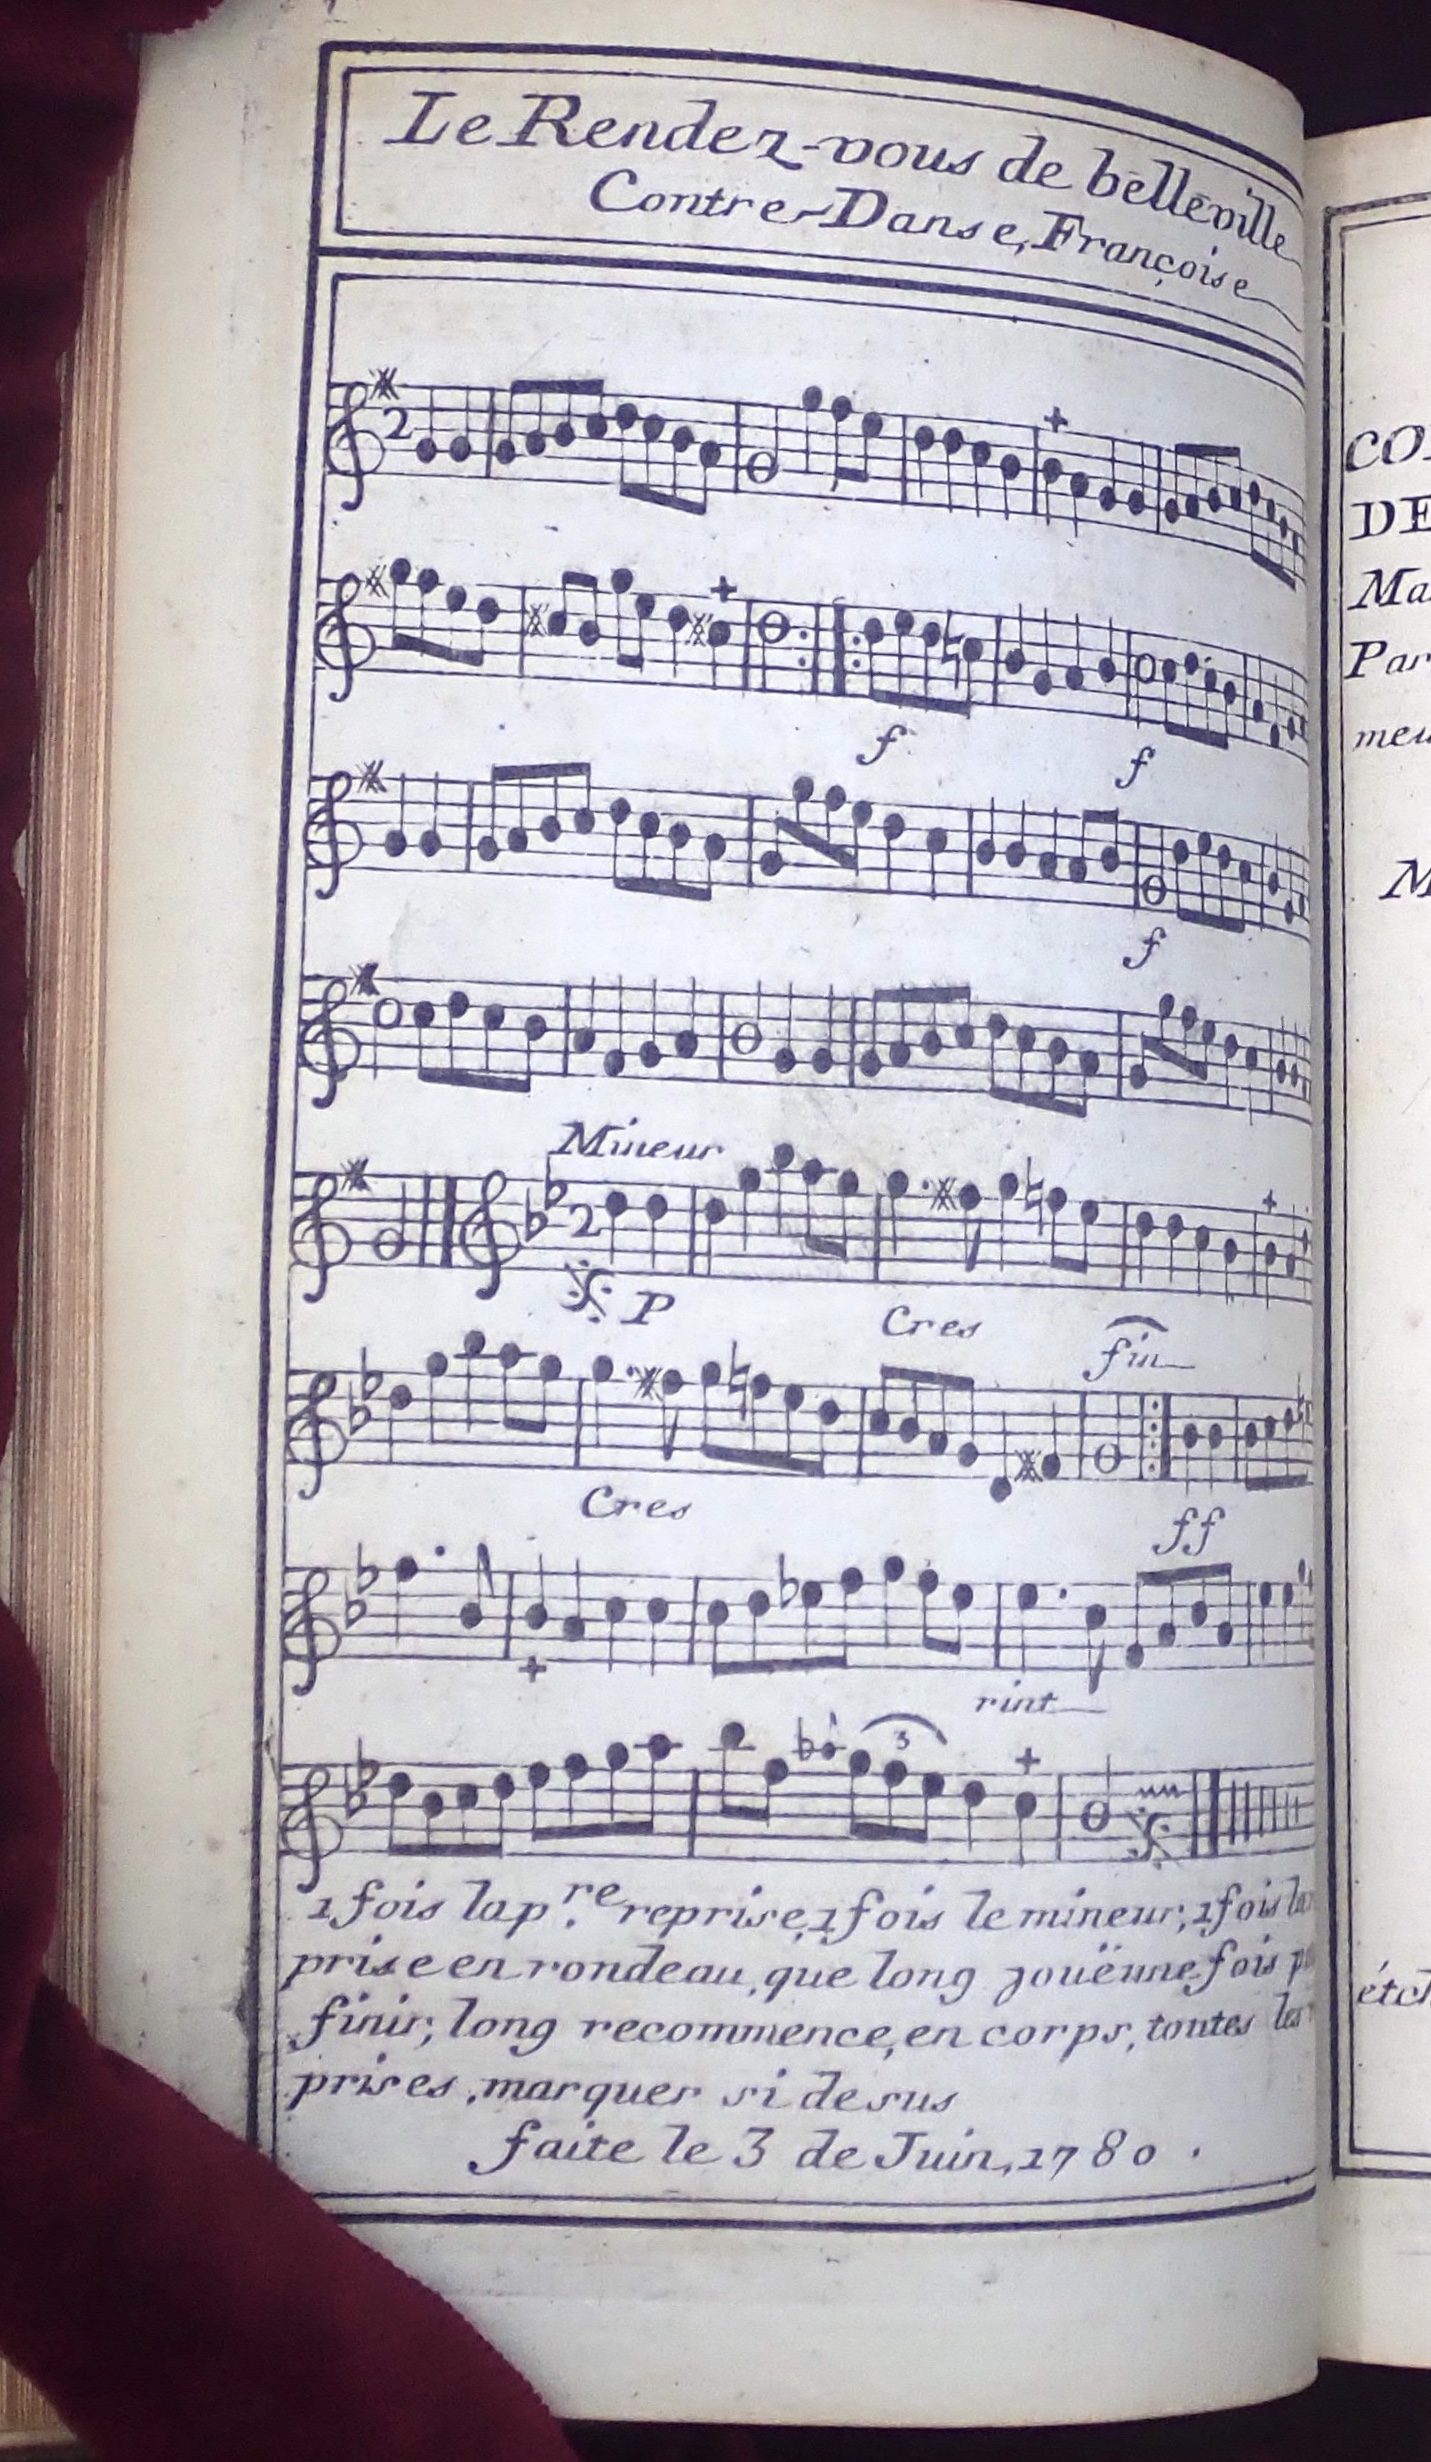 Le Rendez-vous de belleville
Contre-Danse, Françoise
2
f
f
f
Mineur
2
P
Cres
fin
Cres
ff
rint
3
1 fois la p.re reprise, 1 fois le mineur, 1 fois la
prise en rondeau, que long jouëune fois
finir, long recommence, en corps, toutes les
prises, marquer si desus
faite le 3 de Juin, 1780.
DE
Par
M